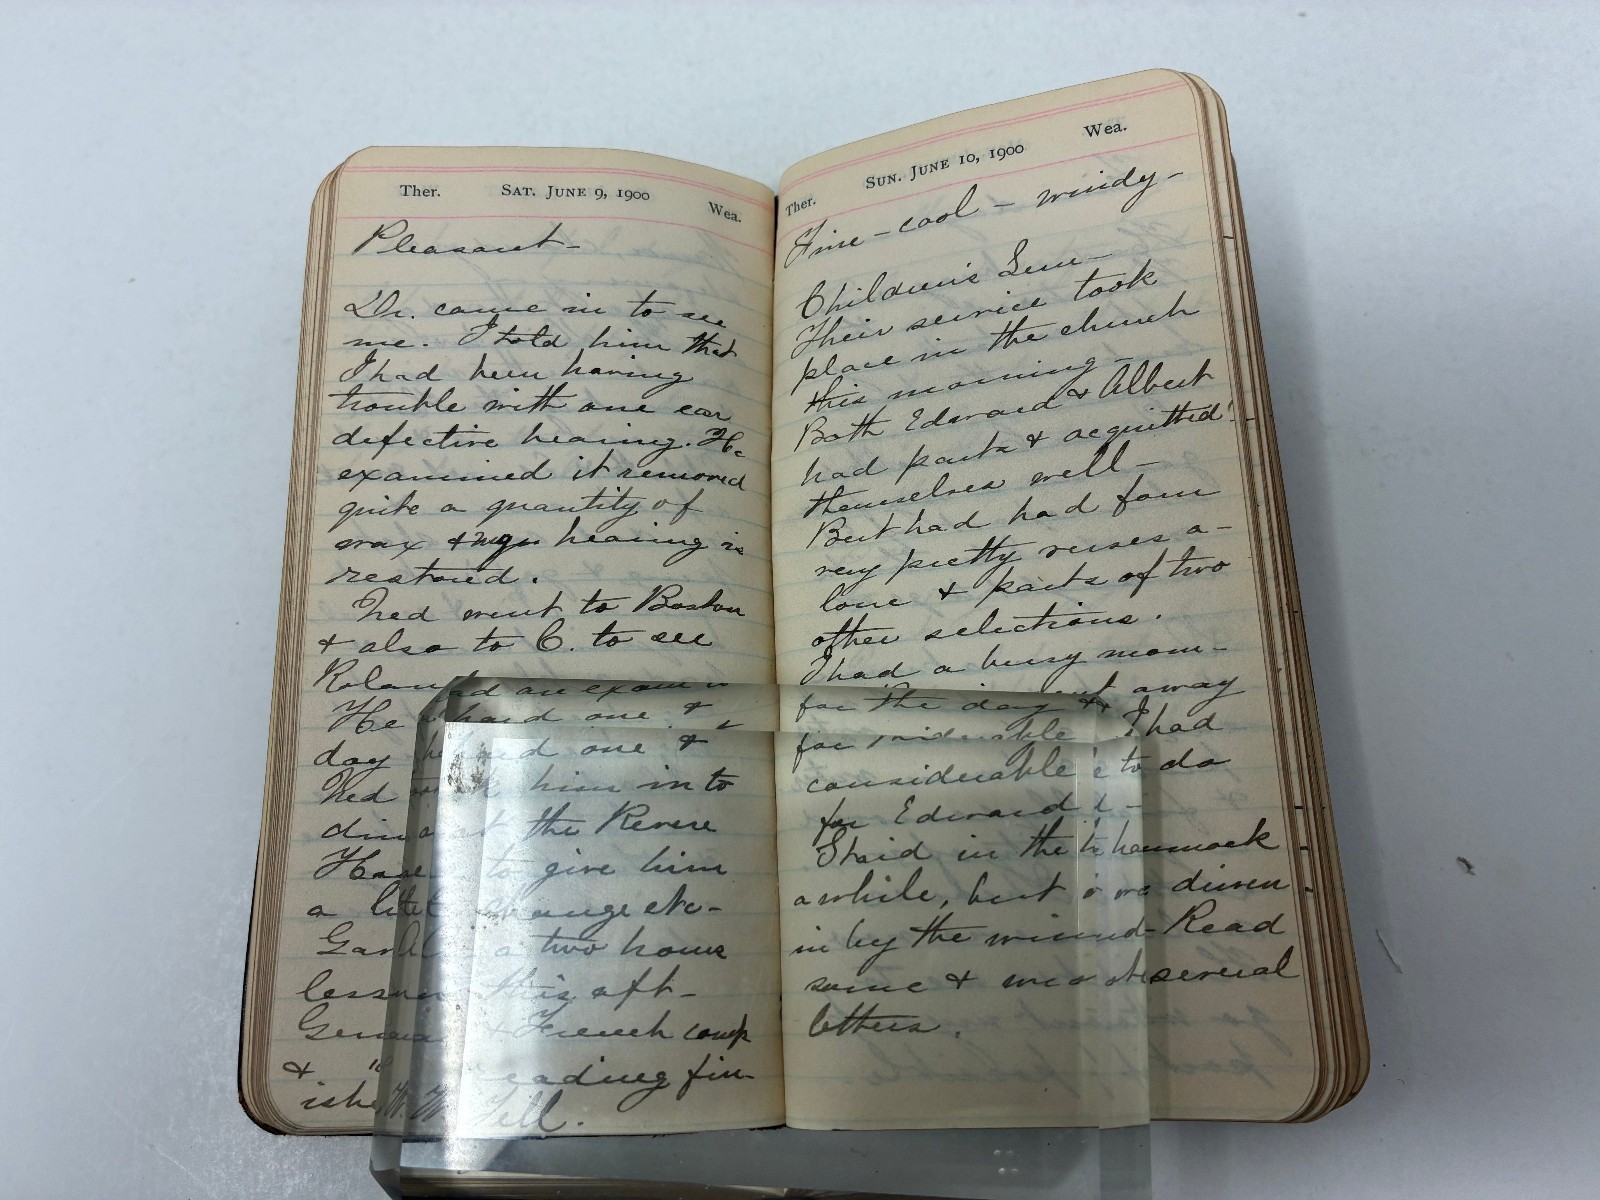 Ther. SAT. JUNE 9, 1900 Wea.
Pleasant -
Dr. came in to see
me. I told him that
I had been having
trouble with one ear
defective hearing. He
examined it removed
quite a quantity of
wax & hearing is
restored.
Ned went to Boston
& also to C. to see
Roland an exam
He hard one &
day
Ned him in to
dine at the Revere
House to give him
a little change etc-
a two hour
lesson this aft-
German & French comp
& reading fin-
ished W. Tell.
Ther. SUN. JUNE 10, 1900 Wea.
Fine - cool - windy -
Children's Sun-
Their service took
place in the church
this morning -
Both Edward & Albert
had parts & acquitted
themselves well -
Bert had had four
very pretty verses a-
lone & parts of two
other selections.
I had a busy morn-
for the day away
for I had
considerable to do
for Edward -
Staid in the hammock
awhile, but was driven
in by the wind - Read
some & wrote several
letters.